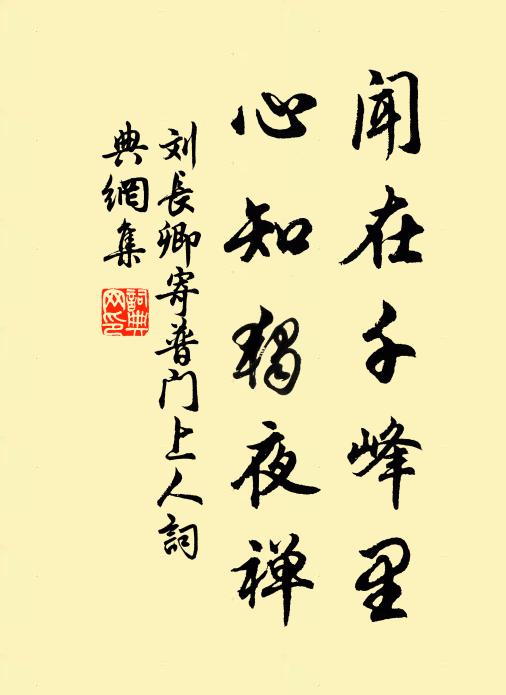 闻在千峰里
心知独夜禅
刘長卿寄普门上人詞
典網集
詞典
网印